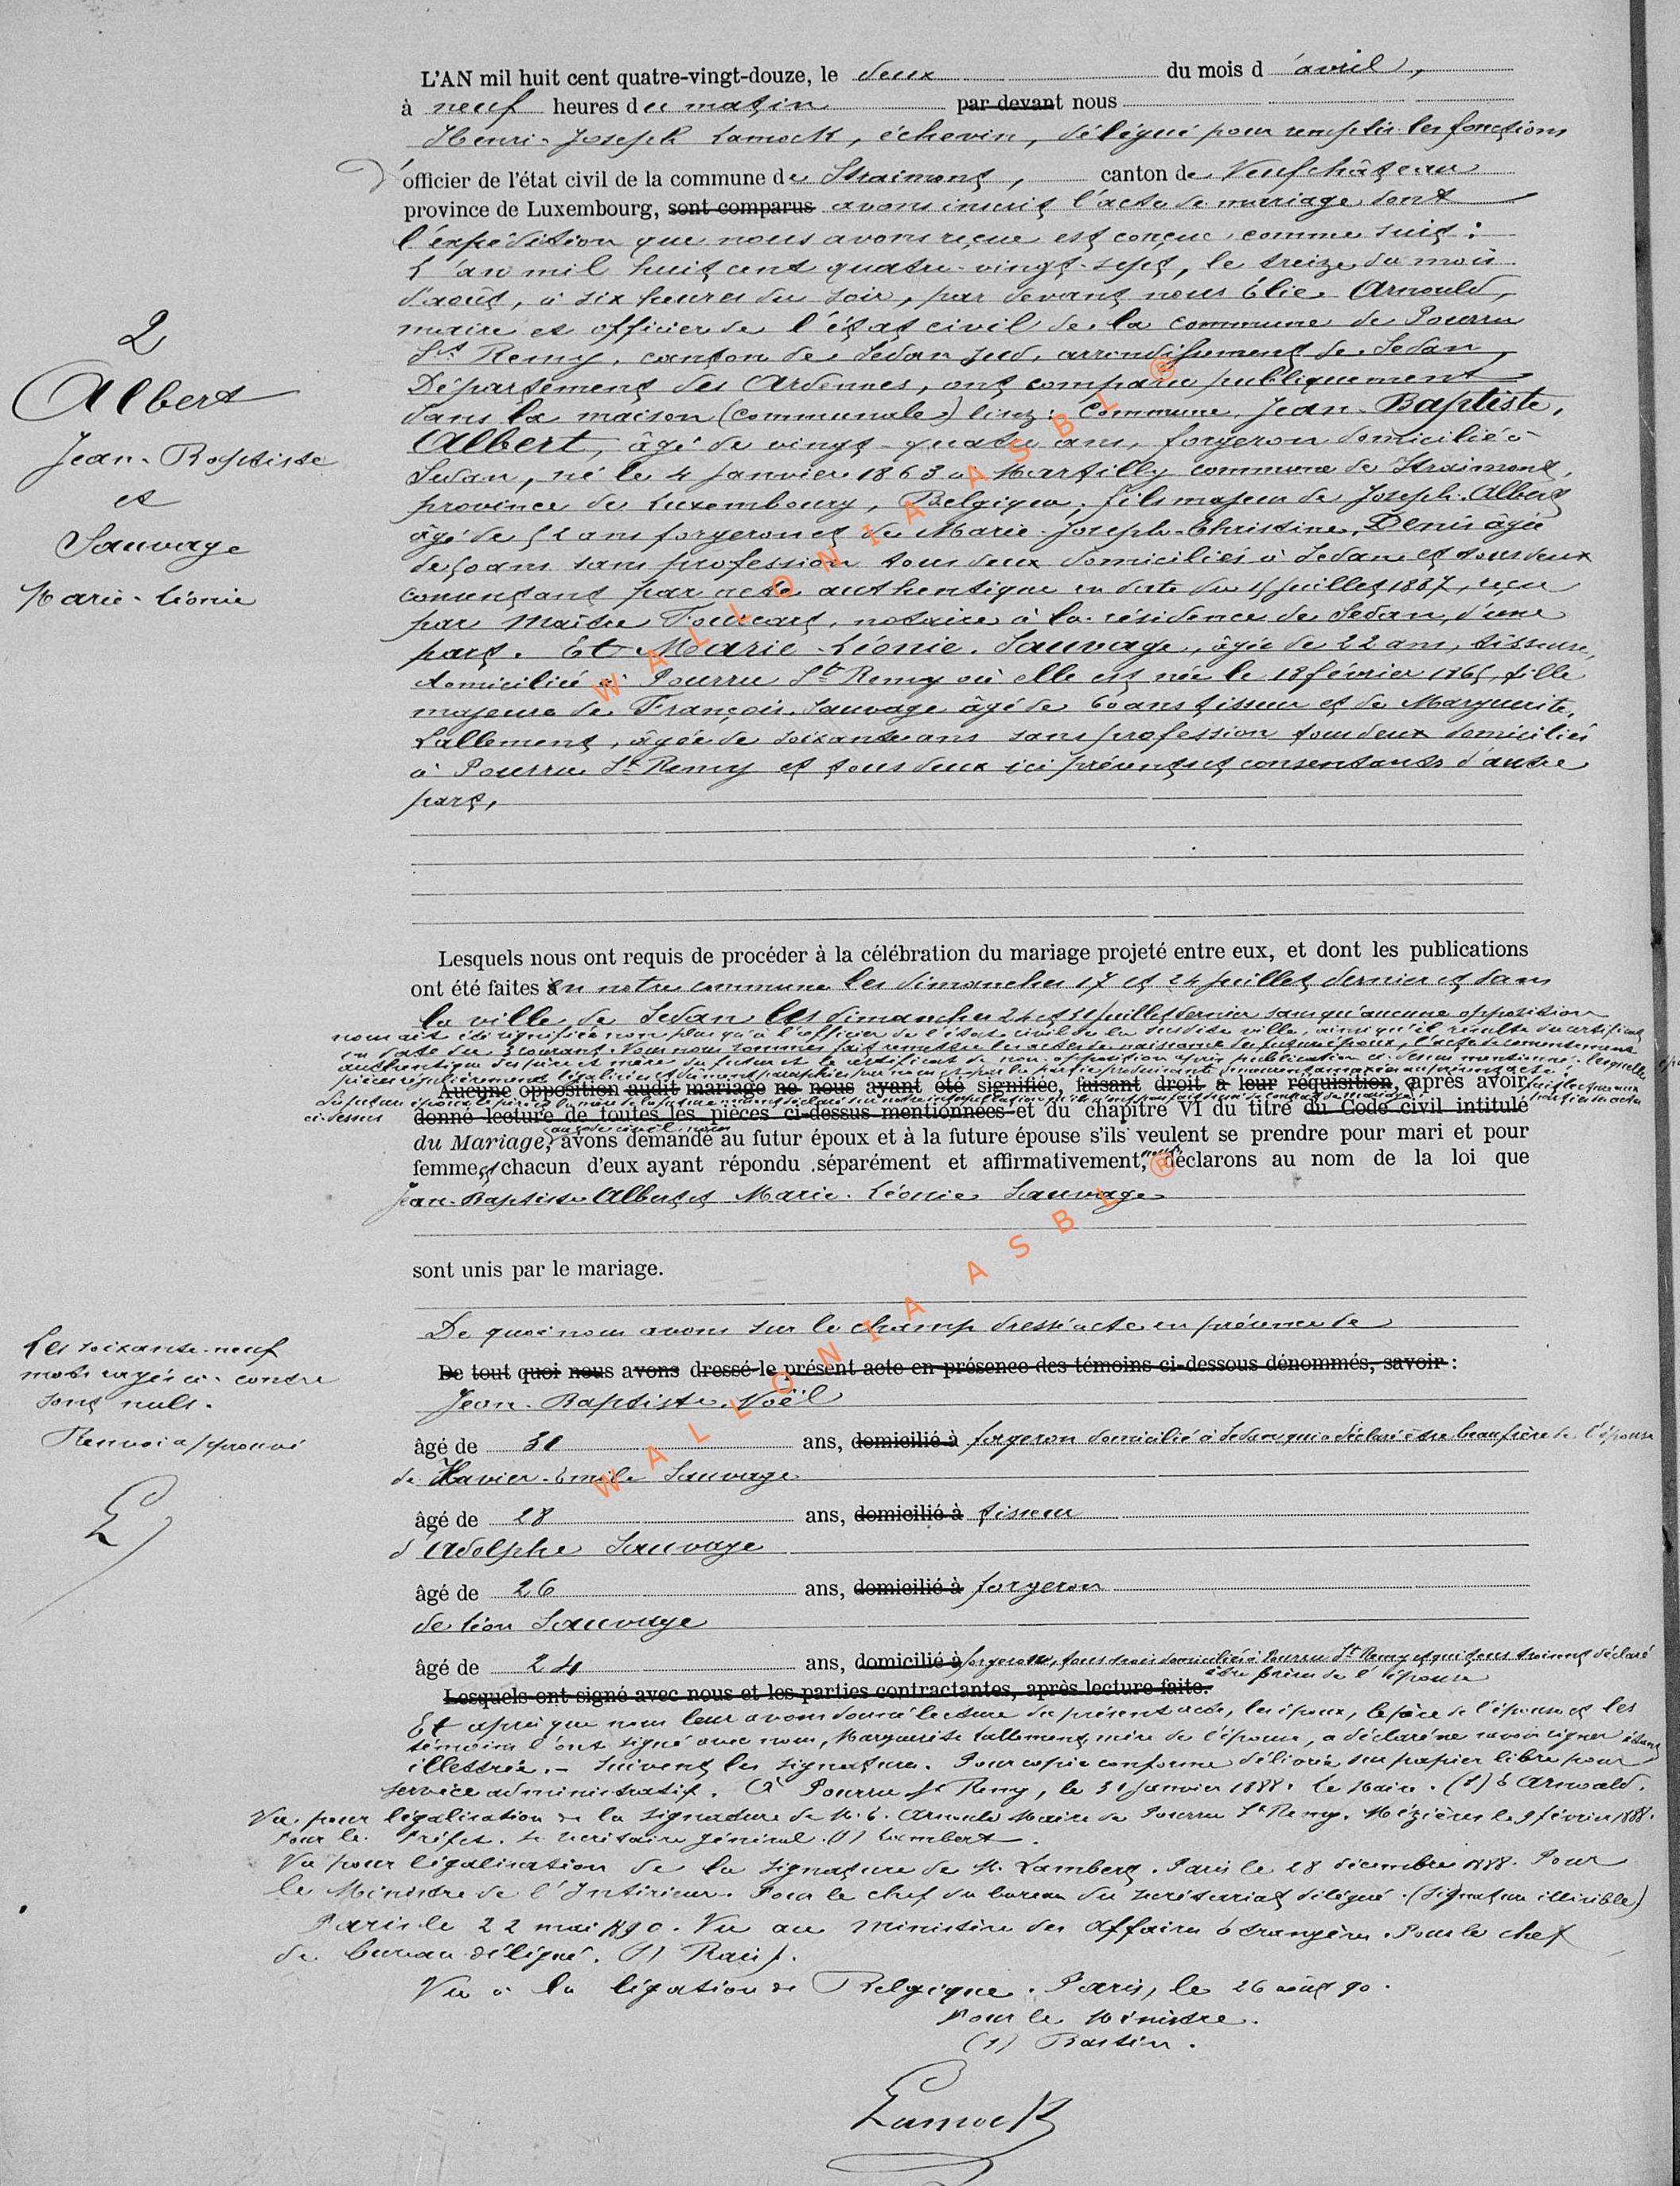 L'AN mil huit cent quatre-vingt-douze, le deux du mois d'avril,
à neuf heures du matin par devant nous
Henri-Joseph Lamock, échevin, délégué pour remplir les fonctions
d'officier de l'état civil de la commune de Straimont, canton de Neufchâteau
province de Luxembourg, sont comparus avons inscrit l'acte de mariage dont
l'expédition que nous avons reçue est conçue comme suit :
L'an mil huit cent quatre-vingt-sept, le treize du mois
d'août, à six heures du soir, par devant nous Elie Arnould,
maire et officier de l'état civil de la commune de Pourru
St Remy, canton de Sedan sud, arrondissement de Sedan,
Département des Ardennes, ont comparu publiquement
dans la maison (communale) lisez : commune, Jean-Baptiste,
Albert, âgé de vingt-quatre ans, forgeron domicilié à
Sedan, né le 4 janvier 1863 à Martilly commune de Straimont,
province de Luxembourg, Belgique, fils majeur de Joseph Albert
âgé de 52 ans forgeron et de Marie-Joseph-Christine, Denis âgée
de 50 ans sans profession tous deux domiciliés à Sedan et tous deux
consentant par acte authentique en date du 15 juillet 1887, reçu
par Maître Foucart, notaire à la résidence de Sedan, d'une
part. Et Marie-Léonie Sauvage, âgée de 22 ans, tisseuse,
domiciliée à Pourru St Remy où elle est née le 18 février 1865, fille
majeure de François Sauvage âgé de 60 ans tisseur et de Marguerite,
Lallement, âgée de soixante ans sans profession tous deux domiciliés
à Pourru St Remy et tous deux ici présents et consentants d'autre
part,
2
Albert
Jean-Baptiste
et
Sauvage
Marie-Léonie
Lesquels nous ont requis de procéder à la célébration du mariage projeté entre eux, et dont les publications
ont été faites en notre commune les dimanches 17 et 24 juillet dernier et dans
la ville de Sedan les dimanches 24 et 31 juillet dernier sans qu'aucune opposition
nous ait été signifiée non plus qu'à l'officier de l'état civil de la susdite ville, ainsi qu'il résulte du certificat
en date du 3 courant. Nous nous sommes fait remettre les actes de naissance des futurs époux, l'acte de consentement
authentique des père et mère du futur et le certificat de non-opposition après publication ci-dessus mentionné, lesquelles
pièces régulièrement légalisées et dûment paraphées
Aucune opposition audit mariage ne nous ayant été signifiée, faisant droit à leur réquisition, après avoir fait lecture aux
parties des actes
ci-dessus donné lecture de toutes les pièces ci-dessus mentionnées et du chapitre VI du titre du Code civil intitulé
du Mariage, au code civil, nous avons demandé au futur époux et à la future épouse s'ils veulent se prendre pour mari et pour
femme, et chacun d'eux ayant répondu séparément et affirmativement, nous déclarons au nom de la loi que
Jean-Baptiste Albert et Marie-Léonie Sauvage
sont unis par le mariage.
De quoi nous avons sur le champ dressé acte en présence de
De tout quoi nous avons dressé le présent acte en présence des témoins ci-dessous dénommés, savoir :
Jean-Baptiste Noël
âgé de 31 ans, domicilié à forgeron domicilié à Sedan qui a déclaré être beau frère de l'épouse
de Xavier-Emile Sauvage
âgé de 28 ans, domicilié à tisseur
d'Adolphe Sauvage
âgé de 26 ans, domicilié à forgeron
de Léon Sauvage
âgé de 24 ans, domicilié à forgeron, tous trois domiciliés à Pourru St Remy et qui tous trois ont déclaré
être frères de l'épouse
Lesquels ont signé avec nous et les parties contractantes, après lecture faite.
Les soixante-neuf
mots rayés ci-contre
sont nuls.
Renvoi approuvé
L
Et après que nous leur avons donné lecture du présent acte, les époux, le père de l'épouse et les
témoins l'ont signé avec nous, Marguerite Lallement, mère de l'épouse, a déclaré ne savoir signer étant
illettrée. – Suivent les signatures. Pour copie conforme délivrée sur papier libre pour
service administratif. A Pourru St Remy, le 31 janvier 1888. Le Maire. (s) E Arnould.
Vu pour légalisation de la signature de M. E. Arnould Maire de Pourru St Remy. Mézières le 9 février 1888.
Pour le Préfet. Le secrétaire général. (s) Lambert.
Vu pour légalisation de la signature de M. Lambert. Paris le 28 décembre 1888. Pour
le Ministre de l'Intérieur. Pour le chef du bureau du secrétariat délégué. (Signature illisible)
Paris le 22 mai 1890. Vu au Ministère des Affaires étrangères. Pour le chef
de bureau délégué. (s)
Vu à la légation de Belgique. Paris, le 26 août 90.
Pour le Ministre.
(s) Bastin.
Lamock
WALLONIA ASBL ®
WALLONIA ASBL ®